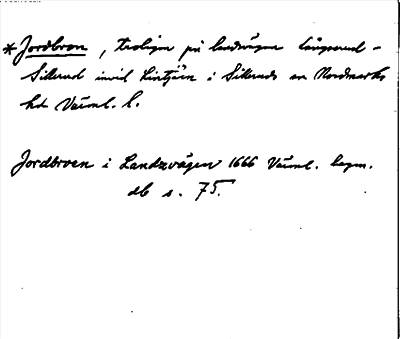 * Jordbron, troligen på landvägen Långserud -
Sillerud invid Kintjärn i Silleruds sn Nordmarks
hd Värml. l.
Jordbroen i Landzvägen 1666 Värml. lagm.
db s. 75.